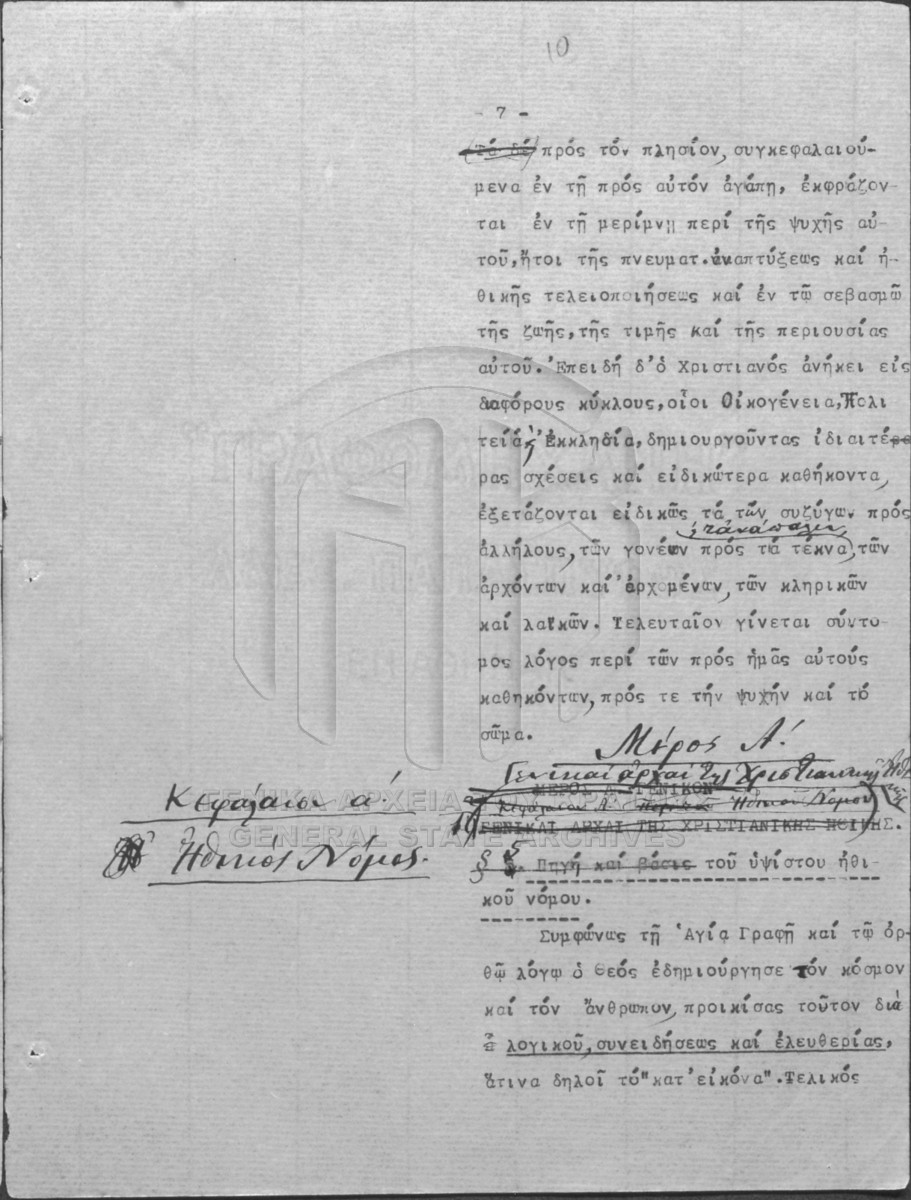 10
- 7 -
Τά δέ πρός τόν πλησίον, συγκεφαλαιού-
μενα ἐν τῇ πρός αὐτόν ἀγάπῃ, ἐκφράζον-
ται ἐν τῇ μερίμνῃ περί τῆς ψυχῆς αὐ-
τοῦ, ἤτοι τῆς πνευματ. ἀναπτύξεως καί ἠ-
θικῆς τελειοποιήσεως καί ἐν τῷ σεβασμῷ
τῆς ζωῆς, τῆς τιμῆς καί τῆς περιουσίας
αὐτοῦ. Ἐπειδή δ'ὁ Χριστιανός ἀνήκει εἰς
διαφόρους κύκλους, οἷοι Οἰκογένεια, Πολι
τεία, Ἐκκλησία, δημιουργοῦντας ἰδιαιτέρα
ρας σχέσεις καί εἰδικώτερα καθήκοντα,
ἐξετάζονται εἰδικῶς τά τῶν συζύγων πρός
ἀλλήλους, τῶν γονέων πρός τά τέκνα, τῶν
ἀρχόντων καί ἀρχομένων, τῶν κληρικῶν
καί λαϊκῶν. Τελευταῖον γίνεται σύντο-
μος λόγος περί τῶν πρός ἡμᾶς αὐτούς
καθηκόντων, πρός τε τήν ψυχήν καί τό
σῶμα.
Μέρος Α'.
Γενικαί ἀρχαί τῆς Χριστιανικῆς Ἠθικῆς
ΜΕΡΟΣ Α. ΓΕΝΙΚΟΝ
Κεφάλαιον α'.
Κεφάλαιον Α' Ἠθικοῦ Νόμου
ΓΕΝΙΚΑΙ ΑΡΧΑΙ ΤΗΣ ΧΡΙΣΤΙΑΝΙΚΗΣ ΗΘΙΚΗΣ.
Ἠθικός Νόμος.
§ 5. Πηγή καί βάσις τοῦ ὑψίστου ἠθι-
κοῦ νόμου.
Συμφώνως τῇ Ἁγίᾳ Γραφῇ καί τῷ ὀρ-
θῷ λόγῳ ὁ Θεός ἐδημιούργησε τόν κόσμον
καί τόν ἄνθρωπον, προικίσας τοῦτον διά
λογικοῦ, συνειδήσεως καί ἐλευθερίας,
ἅτινα δηλοῖ τό "κατ'εἰκόνα". Τελικός
ΓΕΝΙΚΑ ΑΡΧΕΙΑ
GENERAL STATE ARCHIVES